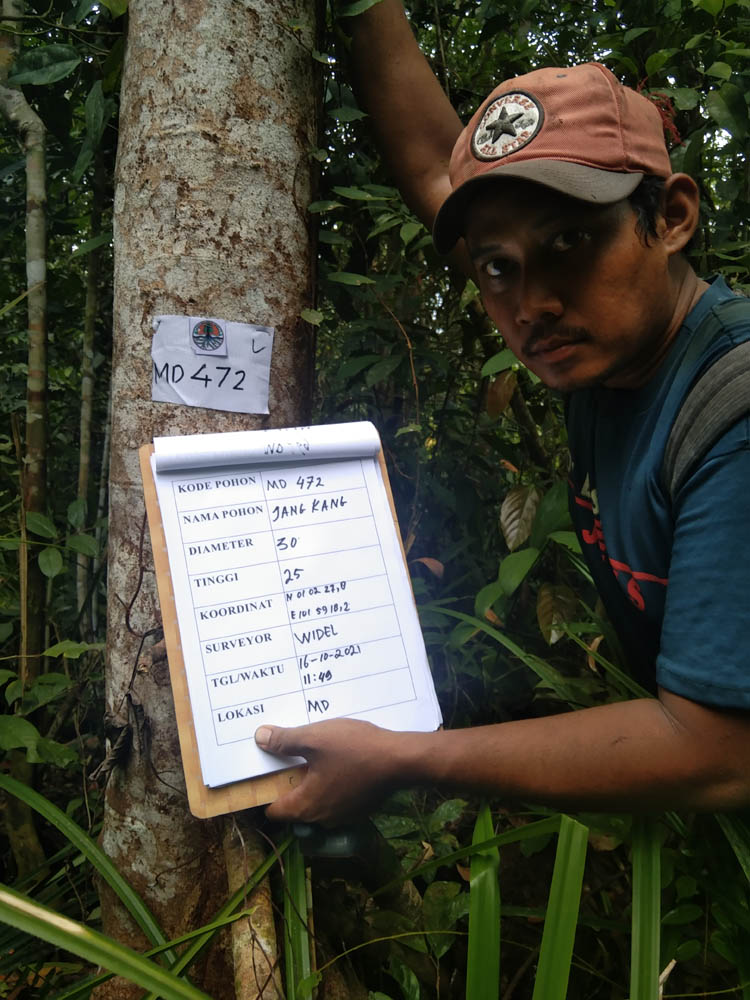 CONVERSE
ALL STAR
MD 472
KODE POHON MD 472
NAMA POHON JANG KANG
DIAMETER 30
TINGGI 25
KOORDINAT N 01 02 27,8
E 101 59 18,2
SURVEYOR WIDEL
TGL/WAKTU 16-10-2021
11:49
LOKASI MD